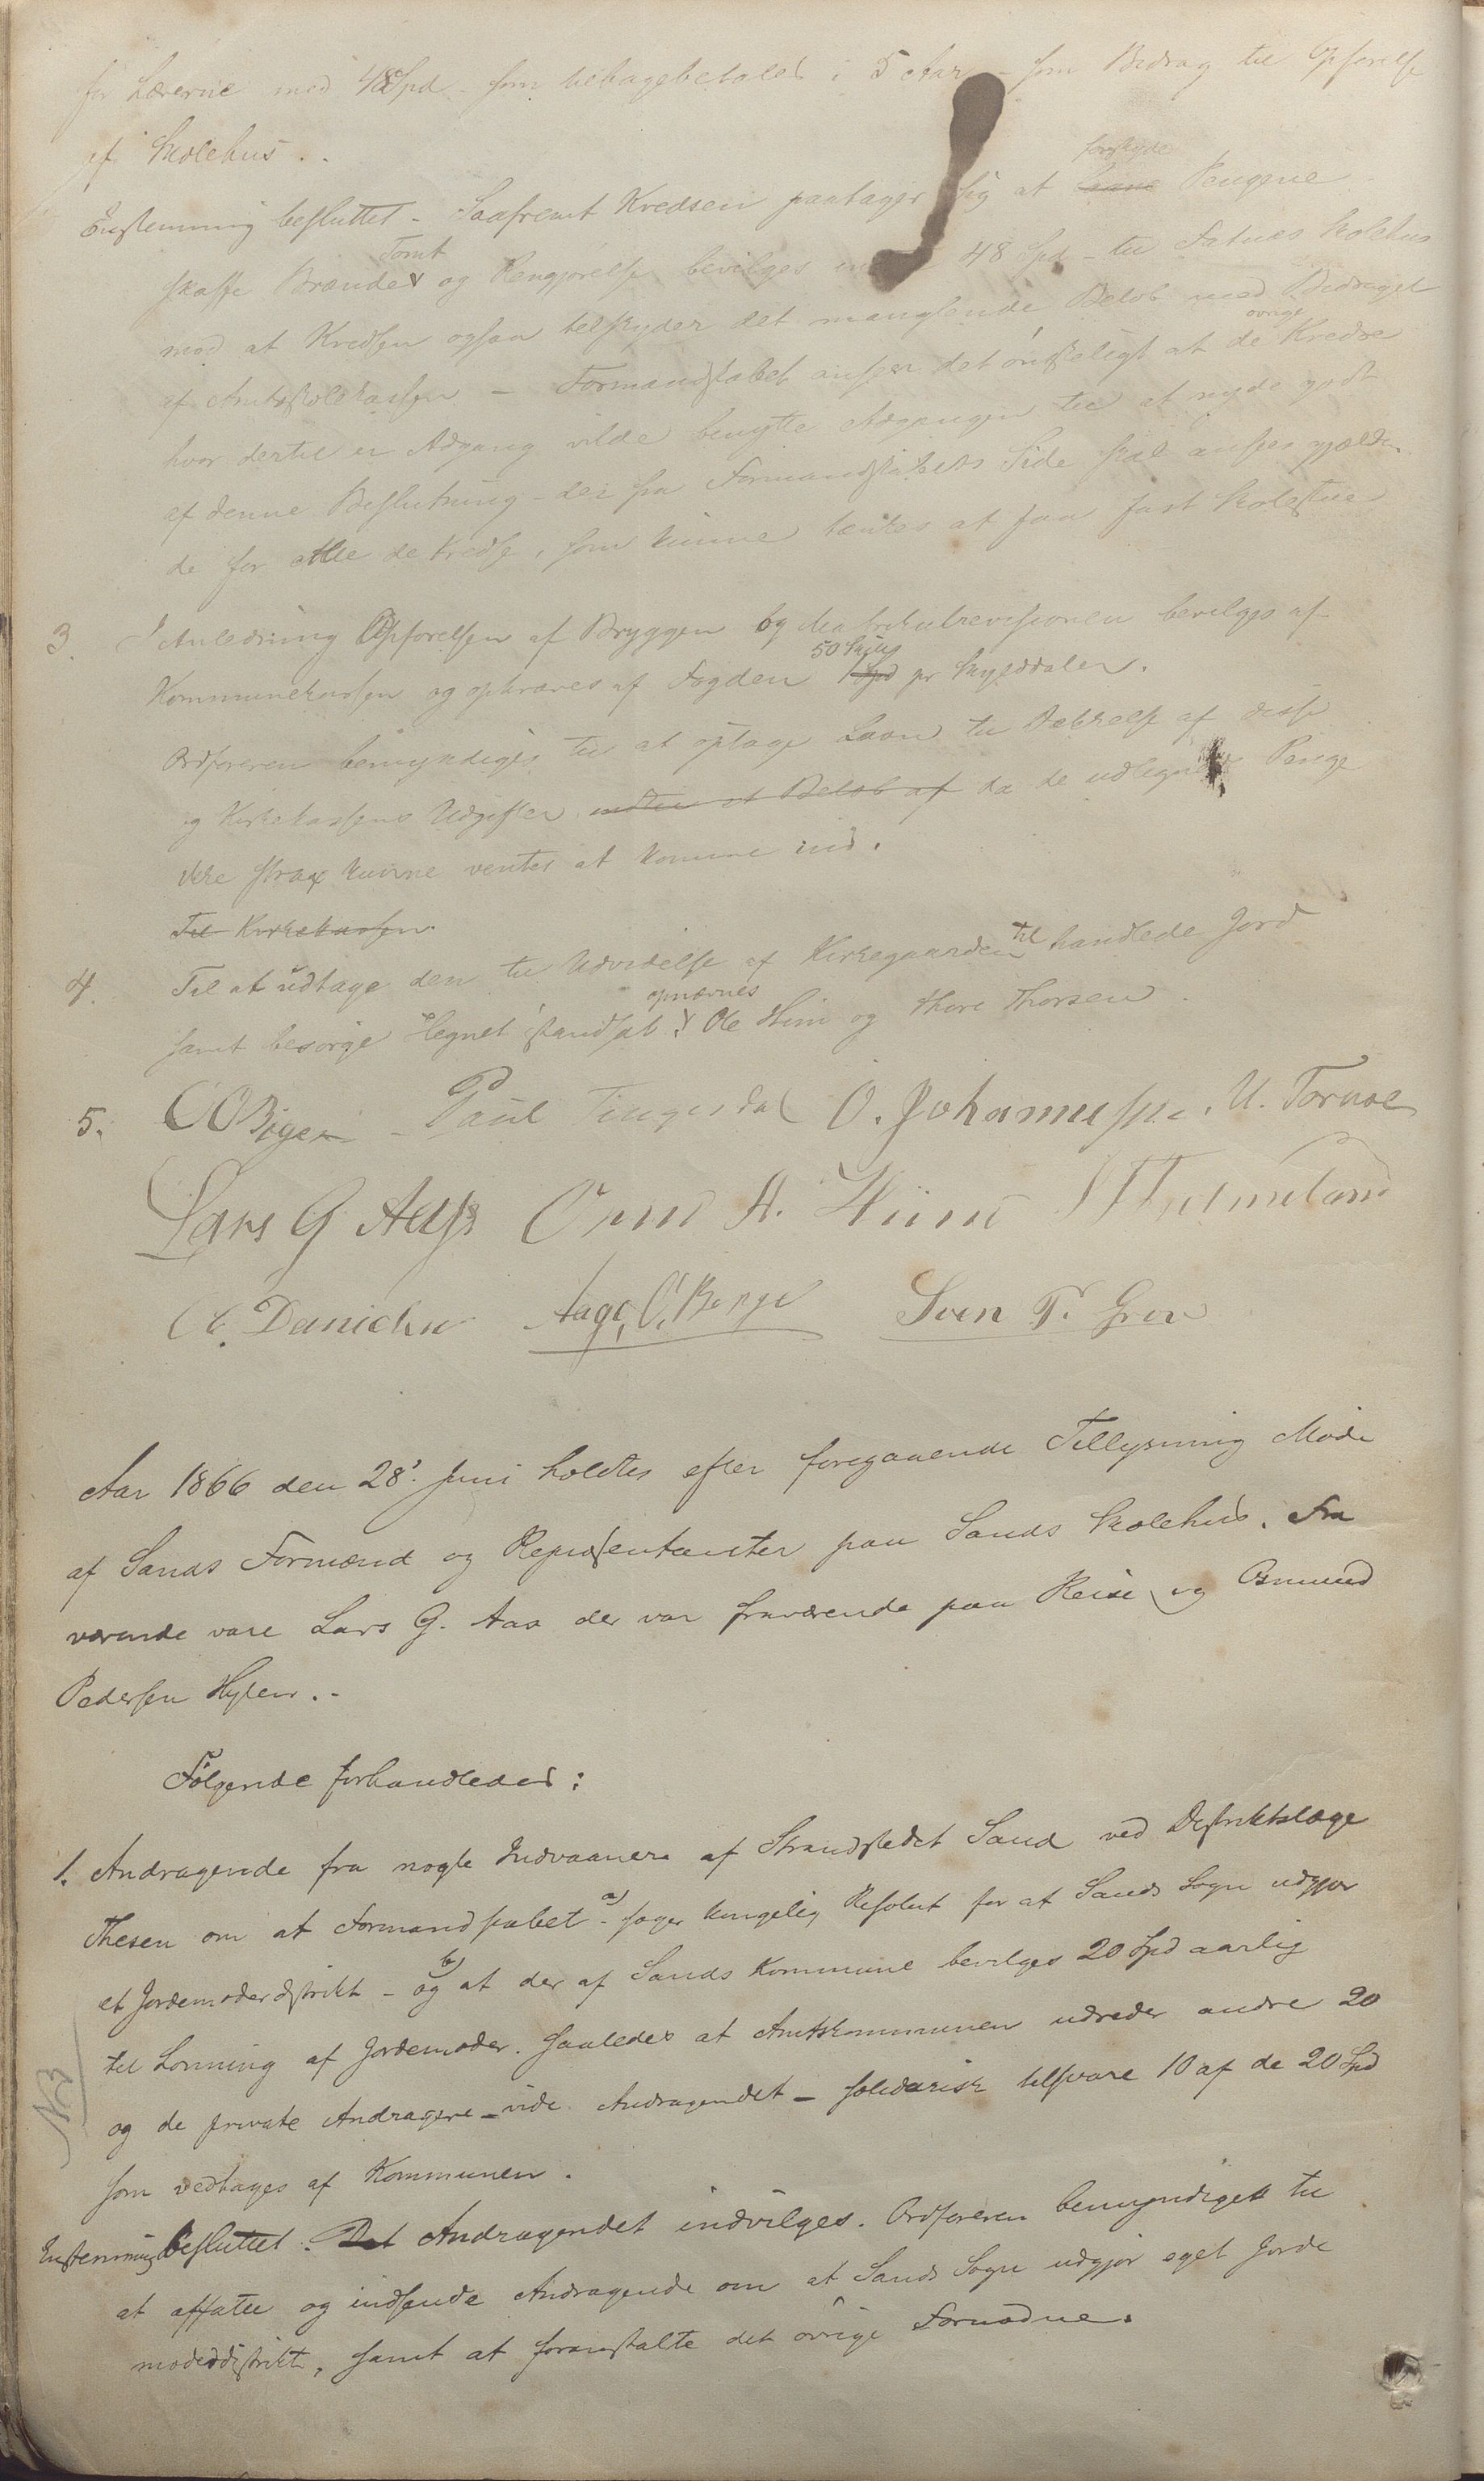 for Lærerne med 48 Spd som tilbagebetales i 5 Aar - som Bidrag til Opførelse
af Skolehus..
Enstemmig besluttet - Saafremt Kredsen paatager sig at forskyde Pengene
skaffe Brænde, Tomt og Rengjørelse bevilges 48 Spd - til Skolehus
mod at Kredsen ogsaa tilskyder det manglende Beløb med Bidraget
af Amtsskolekassen - Formandskabet anseer det ønskeligt at de øvrige Kredse
hvor dertil er Adgang vilde benytte Adgangen til at nyde godt
af denne Beslutning - der fra Formandskabets Side skal ansees gjælden
de for alle de Kredse, som kunne tænkes at faa fast Skolestue
3. I Anledning Opførelsen af Bryggen og Matrikulrevisionen bevilges af
Kommunekassen og opkræves af Fogden 50 Skill 1 Spd pr Skylddaler.
Ordføreren bemyndiges til at optage Laan til Dækkelse af disse
og Kirkekassens Udgifter at Beløb af da de udlignede Penge
ikke strax kunne ventes at komme ind.
Til Kirkekassen.
4. Til at udtage den til Udvidelse af Kirkegaarden tilhandlede Jord
samt besørge Hegnet istandsat opnævnes Ole Hiim og Thore Thorsen.
5. Paul Tingsdal O. Johannessen. U. Tornæs
Lars G Aas Orm A. Hiim
E. Danielsen Aage O. Berge Sven T. Grov
Aar 1866 den 28'. Juni holdtes efter foregaaende Tillysning Møde
af Sands Formænd og Repræsentanter paa Sands Skolehus. Fra
værende vare Lars G. Aas der var fraværende paa Reise og Osmund
Pedersen Hylen. -
Følgende forhandledes:
1. Andragende fra nogle Indvaanere af Strandstedet Sand ved Distriktslæge
Thesen om at Formandskabet - a) søger kongelig Resolut for at Sands Sogn udgjør
et Jordemoderdistrikt - b) og at der af Sands Kommune bevilges 20 Spd aarlig
til Lønning af Jordemoder. saaledes at Amtskommunen udreder andre 20
og de private Andragere - vide Andragendet - solidarisk tilsvare 10 af de 20 Spd
som vedtages af Kommunen.
NB
Enstemmig besluttet. Det Andragendet indvilges. Ordføreren bemyndiget til
at affatte og indsende Andragende om at Sands Sogn udgjør eget Jorde
moderdistrikt, samt at foranstalte det øvrige Fornødne.